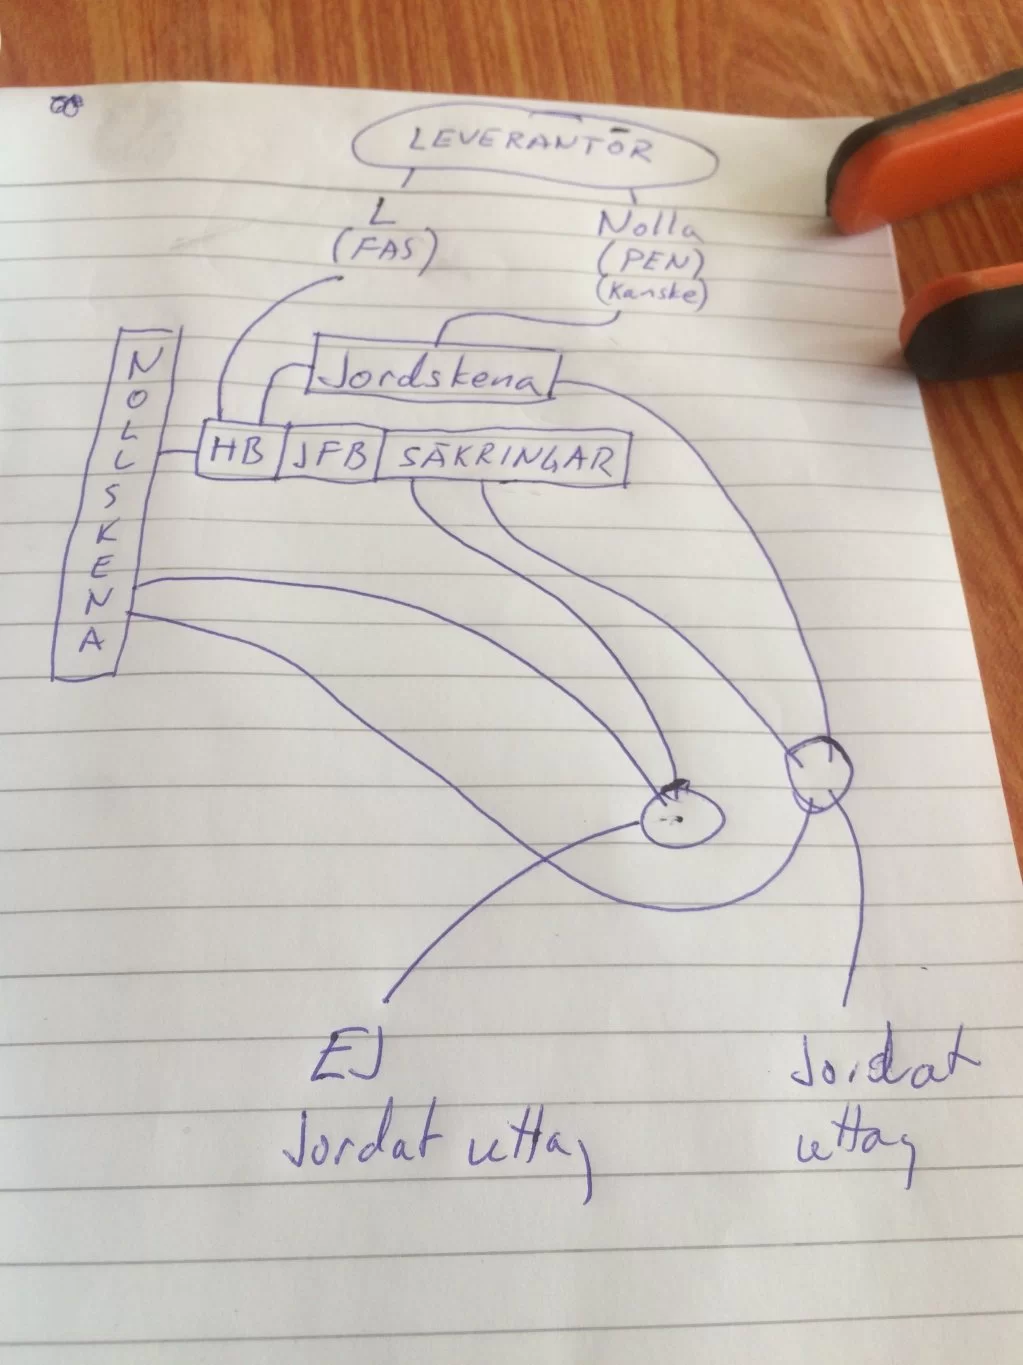 LEVERANTÖR
L
(FAS)
Nolla
(PEN)
(Kanske)
NOLLSKENA
Jordskena
HB JFB SÄKRINGAR
EJ
Jordat uttag
Jordat
uttag